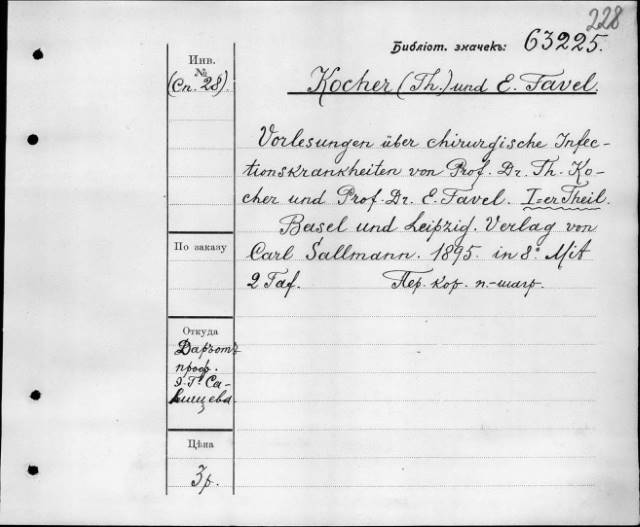 228
Библіот. значекъ: 63225.
Инв.
№
(Сп. 28).
Kocher (Th.) und E. Tavel.
Vorlesungen über chirurgische Infec-
tionskrankheiten von Prof. Dr. Th. Ko-
cher und Prof. Dr. E. Tavel. I=er Theil.
Basel und Leipzig. Verlag von
Carl Sallmann. 1895. in 8° Mit
2 Taf. Пер. кор. п.-шагр.
По заказу
Откуда
Даръ отъ
проф.
Э. Г. Са-
лищева.
Цѣна
3 р.